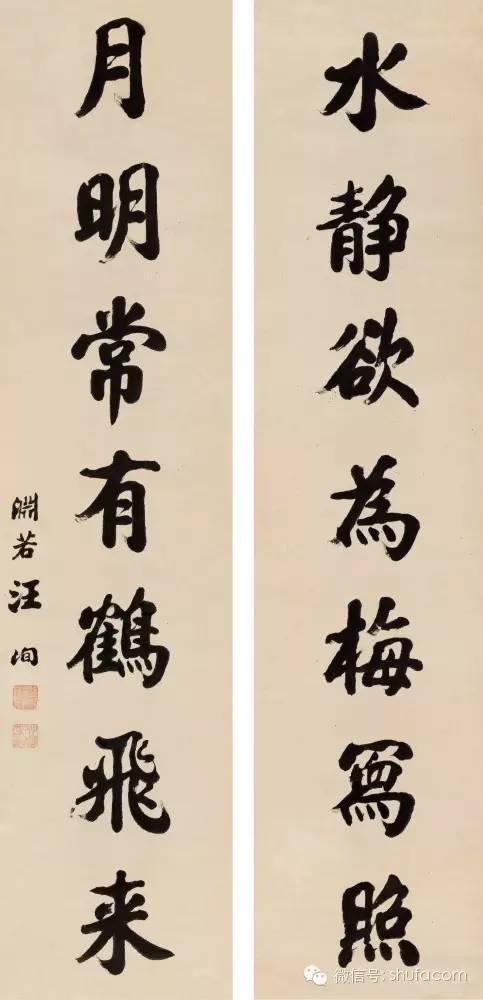 水静欲為梅寫照
月明常有鶴飛来
淵若汪洵
微信号: shufacom